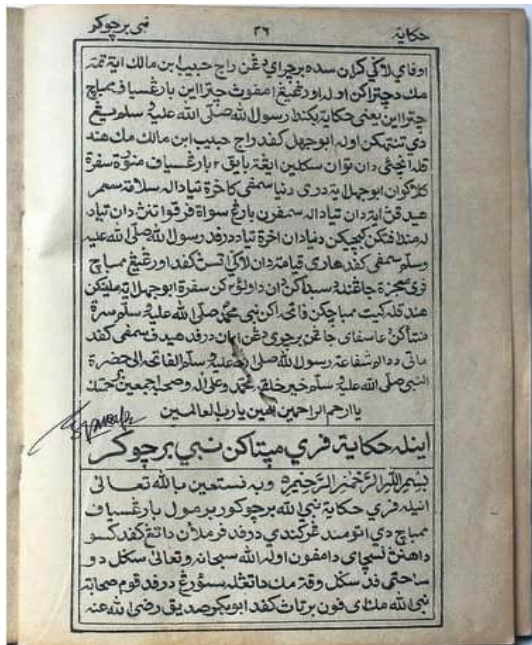 حكاية ٢٦ نبي برچوكر
اوفاي لاكي كران سده برچراي دڠن راج حبيب ابن مالك اية تمة
مك دچتراكن اوله اورڠيڠ امفوث چترا اين بارڠسياف ممباچ
چترا اين يعني حكاية بكندا رسول الله صلى الله عليه وسلم يڠ
دي تنتهكن اوله ابوجهل كفد راج حبيب ابن مالك مك هند
قله ايڠتي دان توان سكلين ايڠة بايق٢ بارڠسياف منوره سفرة
كلاكوان ابوجهل اية دري دنيا سمفي كاخرة تياد اله سلامة سعمر
هيدفن اية دان تياد اله سمفرن بارڠ سواة فرقوا تنن دان تياد
له مندافتكن كبجيكن دنيا دان اخرة تياد درفد رسول الله صلى الله عليه
وسلم سمفي كفد هاري قيامة دان لاكي اتس كفد اورڠيڠ ممباچ
فري معجزة جاڠن د سبداكن دان داولوق٢كن سفرة ابوجهل اية مليڠكن
هند قله كيت ممباچكن فاتحه اكن نبي محمد صلى الله عليه وسلم سرة
منتاكن عاسفاي جاڠن برچري دڠن ايمان درفد هيدف سمفي كفد
ماتي ددالم شفاعة رسول الله صلى الله عليه وسلم الفاتحة الى حضرة
النبي صلى الله عليه وسلم خير خلقه محمد وعلى اله وصحبه اجمعين برحمتك
يا ارحم الراحمين امين يارب العالمين
اينله حكاية فري مپتاكن نبي برچوكر
بسم الله الرحمن الرحيم وبه نستعين بالله تعالى
انيله فري حكاية نبي الله برچوكور برمول بارڠسياف
ممباچ دي اتو مندڠركندي درفد فرملأن داتڠ كفد كسو
داهنن نسچاي دامفون اوله الله سبحانه وتعالى سكل دو
ساحتى فد سكل وقة مك داتڠله سئورڠ درفد قوم صحابة
نبي الله مك اي فون برتاث كفد ابوبكر صديق رضي الله عنه